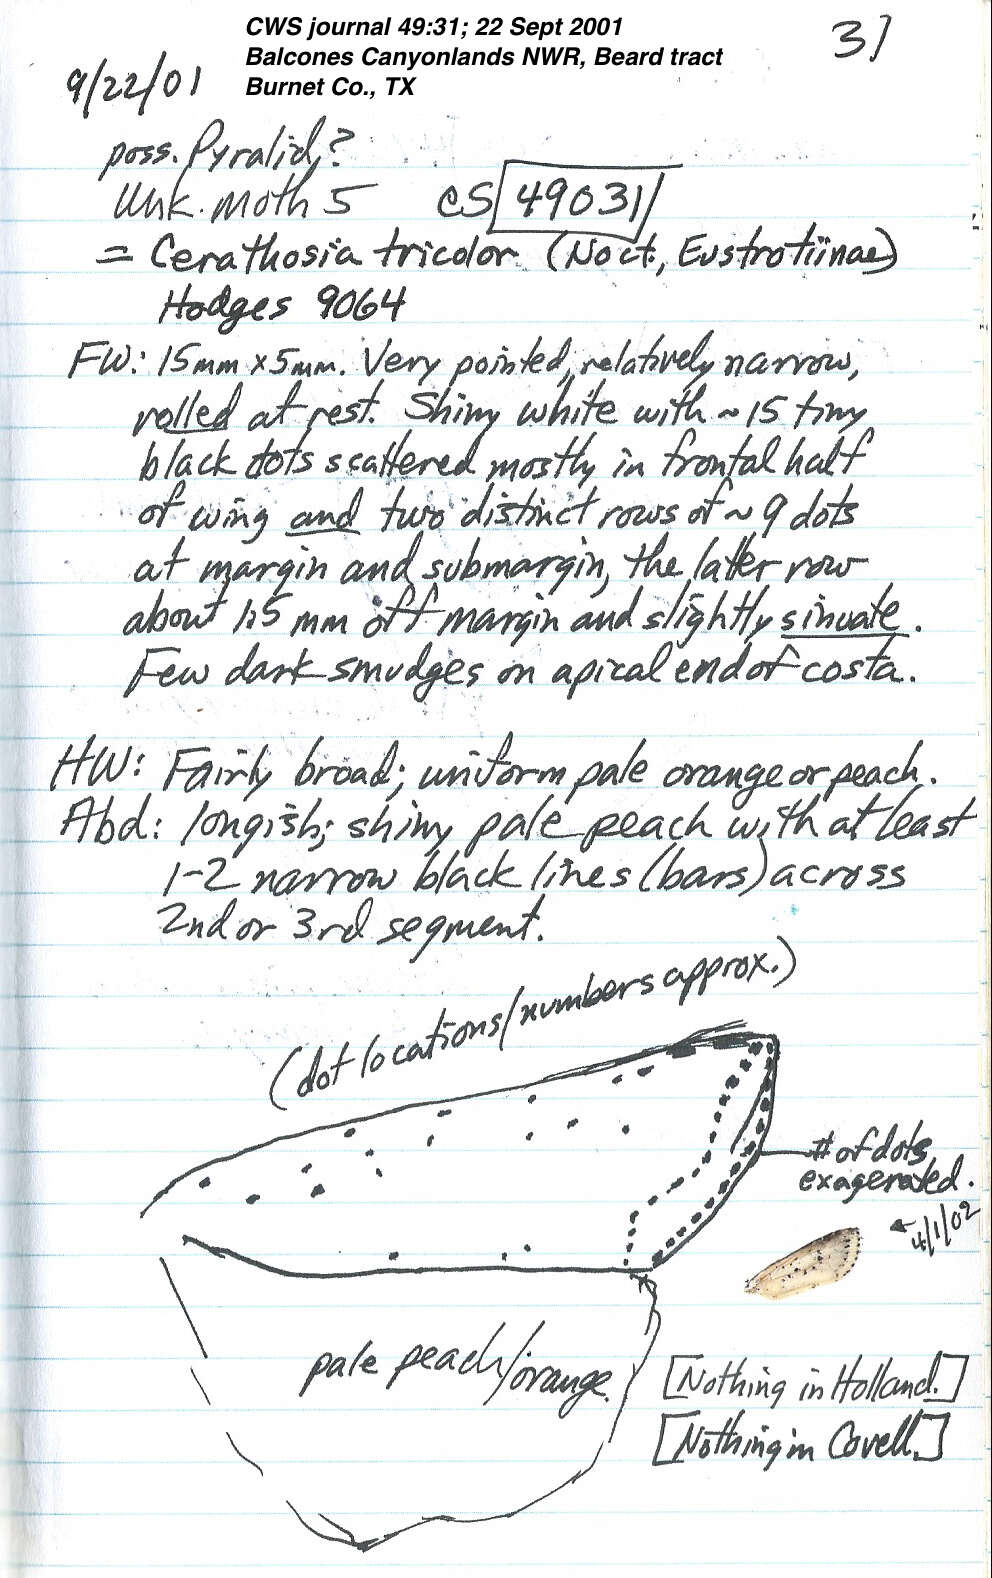 CWS journal 49:31; 22 Sept 2001
Balcones Canyonlands NWR, Beard tract
Burnet Co., TX
31
9/22/01
poss. Pyralid,?
Unk. Moth 5 CS 49031
= Cerathosia tricolor (Noct, Eustrotiinae)
Hodges 9064
FW: 15mm x 5mm. Very pointed, relatively narrow,
rolled at rest. Shiny white with ~15 tiny
black dots scattered mostly in frontal half
of wing and two distinct rows of ~9 dots
at margin and submargin, the latter row
about 1.5 mm off margin and slightly sinuate.
Few dark smudges on apical end of costa.
HW: Fairly broad; uniform pale orange or peach.
Abd: longish; shiny pale peach with at least
1-2 narrow black lines (bars) across
2nd or 3rd segment.
(dot locations/numbers approx.)
# of dots
exagerated.
4/1/02
pale peach/orange
[Nothing in Holland.]
[Nothing in Covell.]